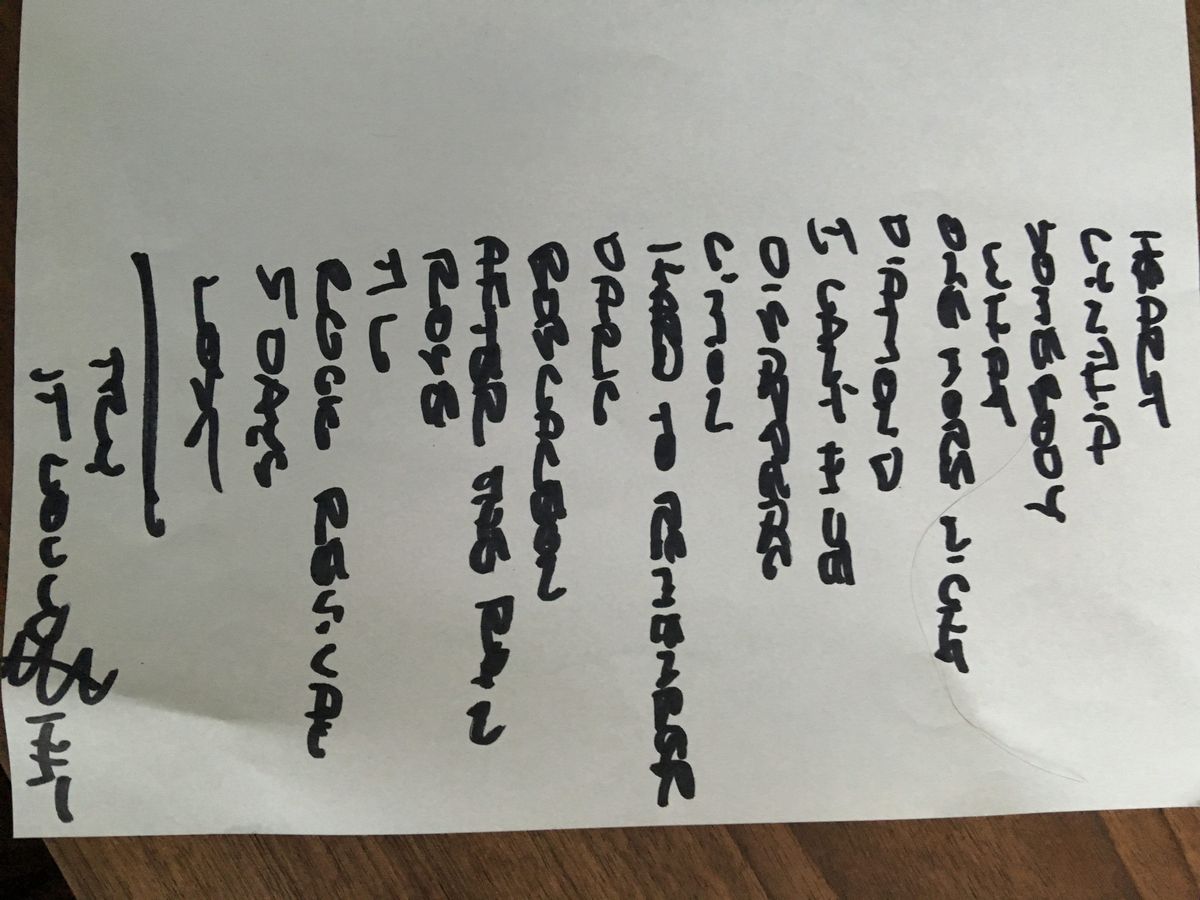 HEART
CYNTHIA
SOMEBODY
WHAT
ONE MORE NIGHT
DIAMOND
I CAN'T HIDE
DISAPPEAR
LIMON
HARD TO REMEMBER
DARK
AFTER THE RAIN
ROYE
ROCK REVIVAL
5 DAYS
LOST
TRY
IT